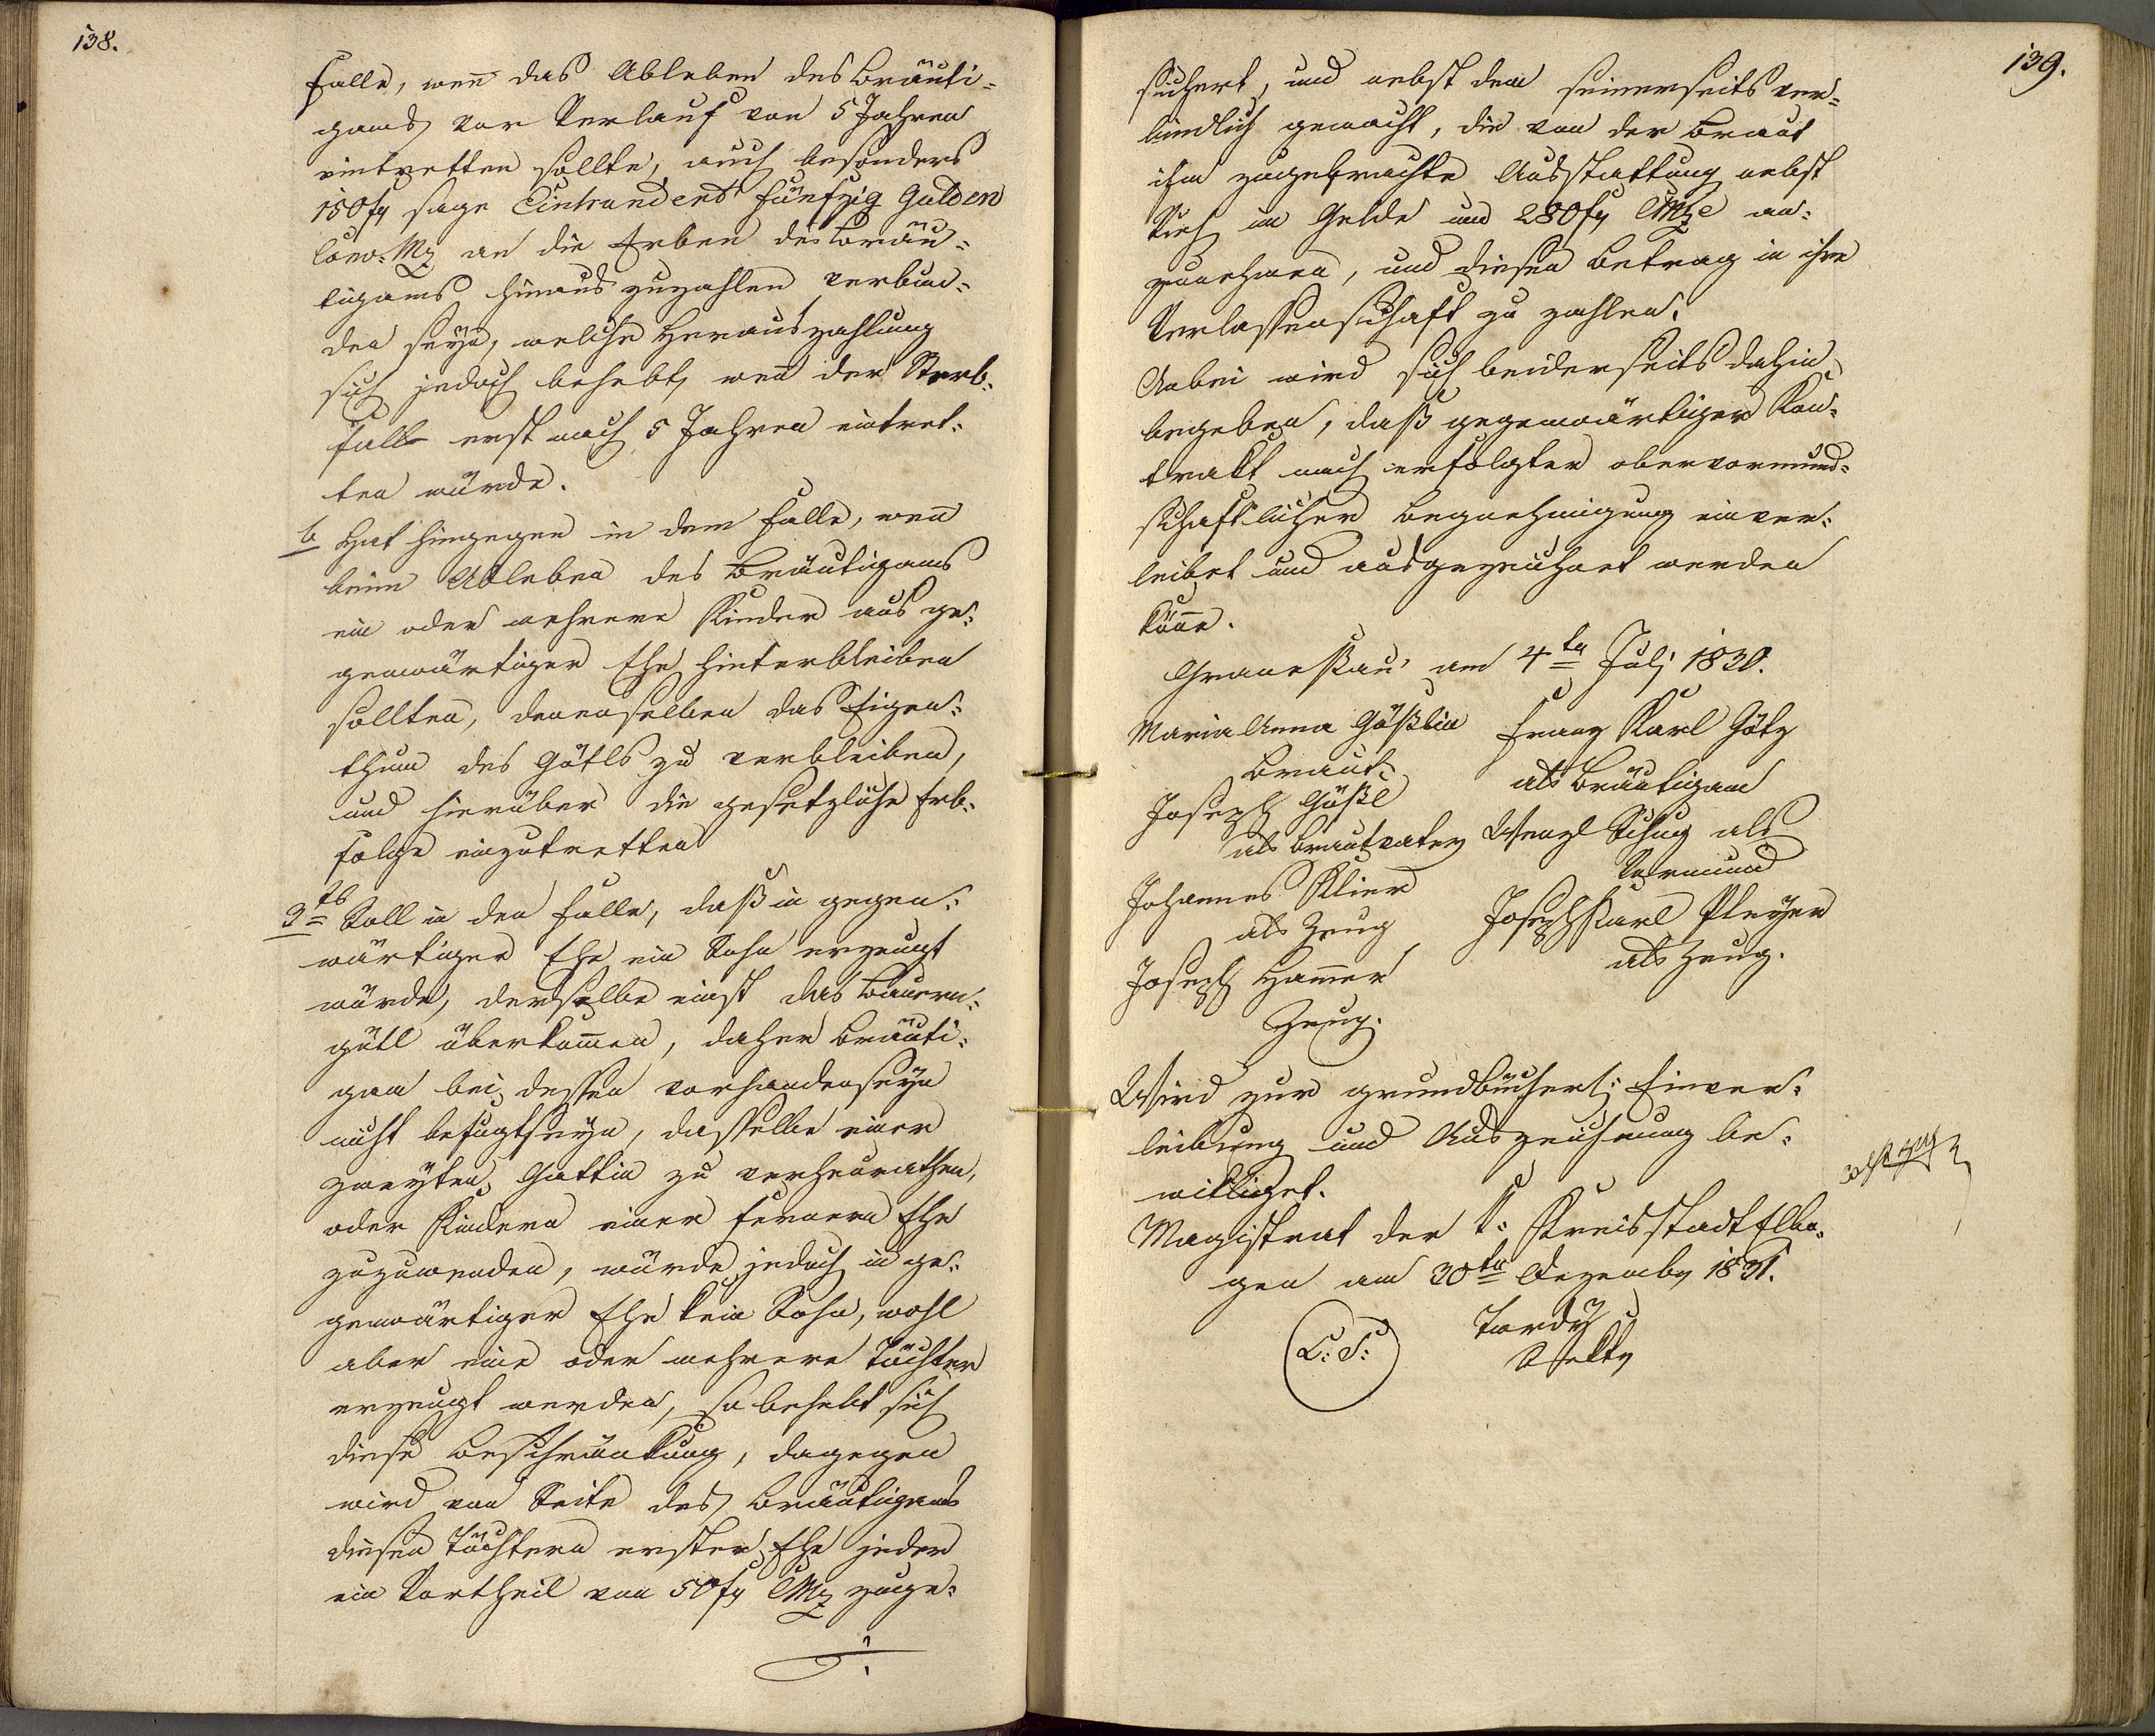 138.
Falle, wen̄ das Ableben des Bräuti=
gams vor Verlauf von 5 Jahren
eintretten sollte, auch besonders
150 fr sage Einhundert fünfzig Gulden
Conv. Mz an die Erben des Bräu=
tigams hinauszuzahlen verbun=
den seyn, welche Herauszahlung
sich jedoch behebt, wen̄ der Sterb=
fall erst nach 5 Jahren eintret=
ten würde.
b Hat hingegen in dem Falle, wen̄
beim Ableben des Bräutigams
ein oder mehrere Kinder aus ge=
genwärtiger Ehe hinterbleiben
sollten, denenselben das Eigen=
thum des Gütls zu verbleiben,
und hierüber die gesetzliche Erb=
folge einzutretten
3tb Soll in den Falle, daß in gegen=
wärtiger Ehe ein Sohn erzeugt
würde, derselbe einst das Bauern=
gütl überkom̄en, daher Bräuti=
gam bei dessen vorhandenseyn
nicht befugt seyn, dasselbe einer
zweyten Gattin zu verheurathen,
oder Kindern einer fernern Ehe
zuzuwenden, würde jedoch in ge=
genwärtiger Ehe kein Sohn, wohl
aber eine oder mehrere Töchter
erzeugt werden, so behebt sich
diese Beschränkung, dagegen
wird von Seite des Bräutigams
diesen Töchtern erster Ehe jeder
ein Vortheil von 50 fr CMz zuge=
139.
sichert, und nebst dem seinerseits ver=
bindlich gemacht, die von der Braut
ihm zugebrachte Ausstattung nebst
Vieh im Gelde und 280 fr CMze an=
zunehmen, und diesen Betrag in ihre
Verlassenschaft zu zahlen.
Anbei wird sich beiderseits dahin
begeben, daß gegenwärtiger Kon=
trakt nach erfolgter obervormund=
schaftlicher Begnehmigung einver=
leibet und ausgezeichnet werden
kön̄e.
Granesau am 4tn Juli 1830.
Maria Anna Gößlin Franz Karl Götz
Braut als Bräutigam
Joseph Gößl
als Brautvater Wenzl Schug als
Vormund
Johannes Klier
als Zeug Joseph Karl Pleyer
als Zeug.
Joseph Ham̄er
Zeug.
Wird zur grundbücherl: Einver=
leibung und Auszeichnung be=
williget.
Magistrat der k: Kreisstadt Elbo=
gen am 30tn Dezember 1831.
L: S: Tardy